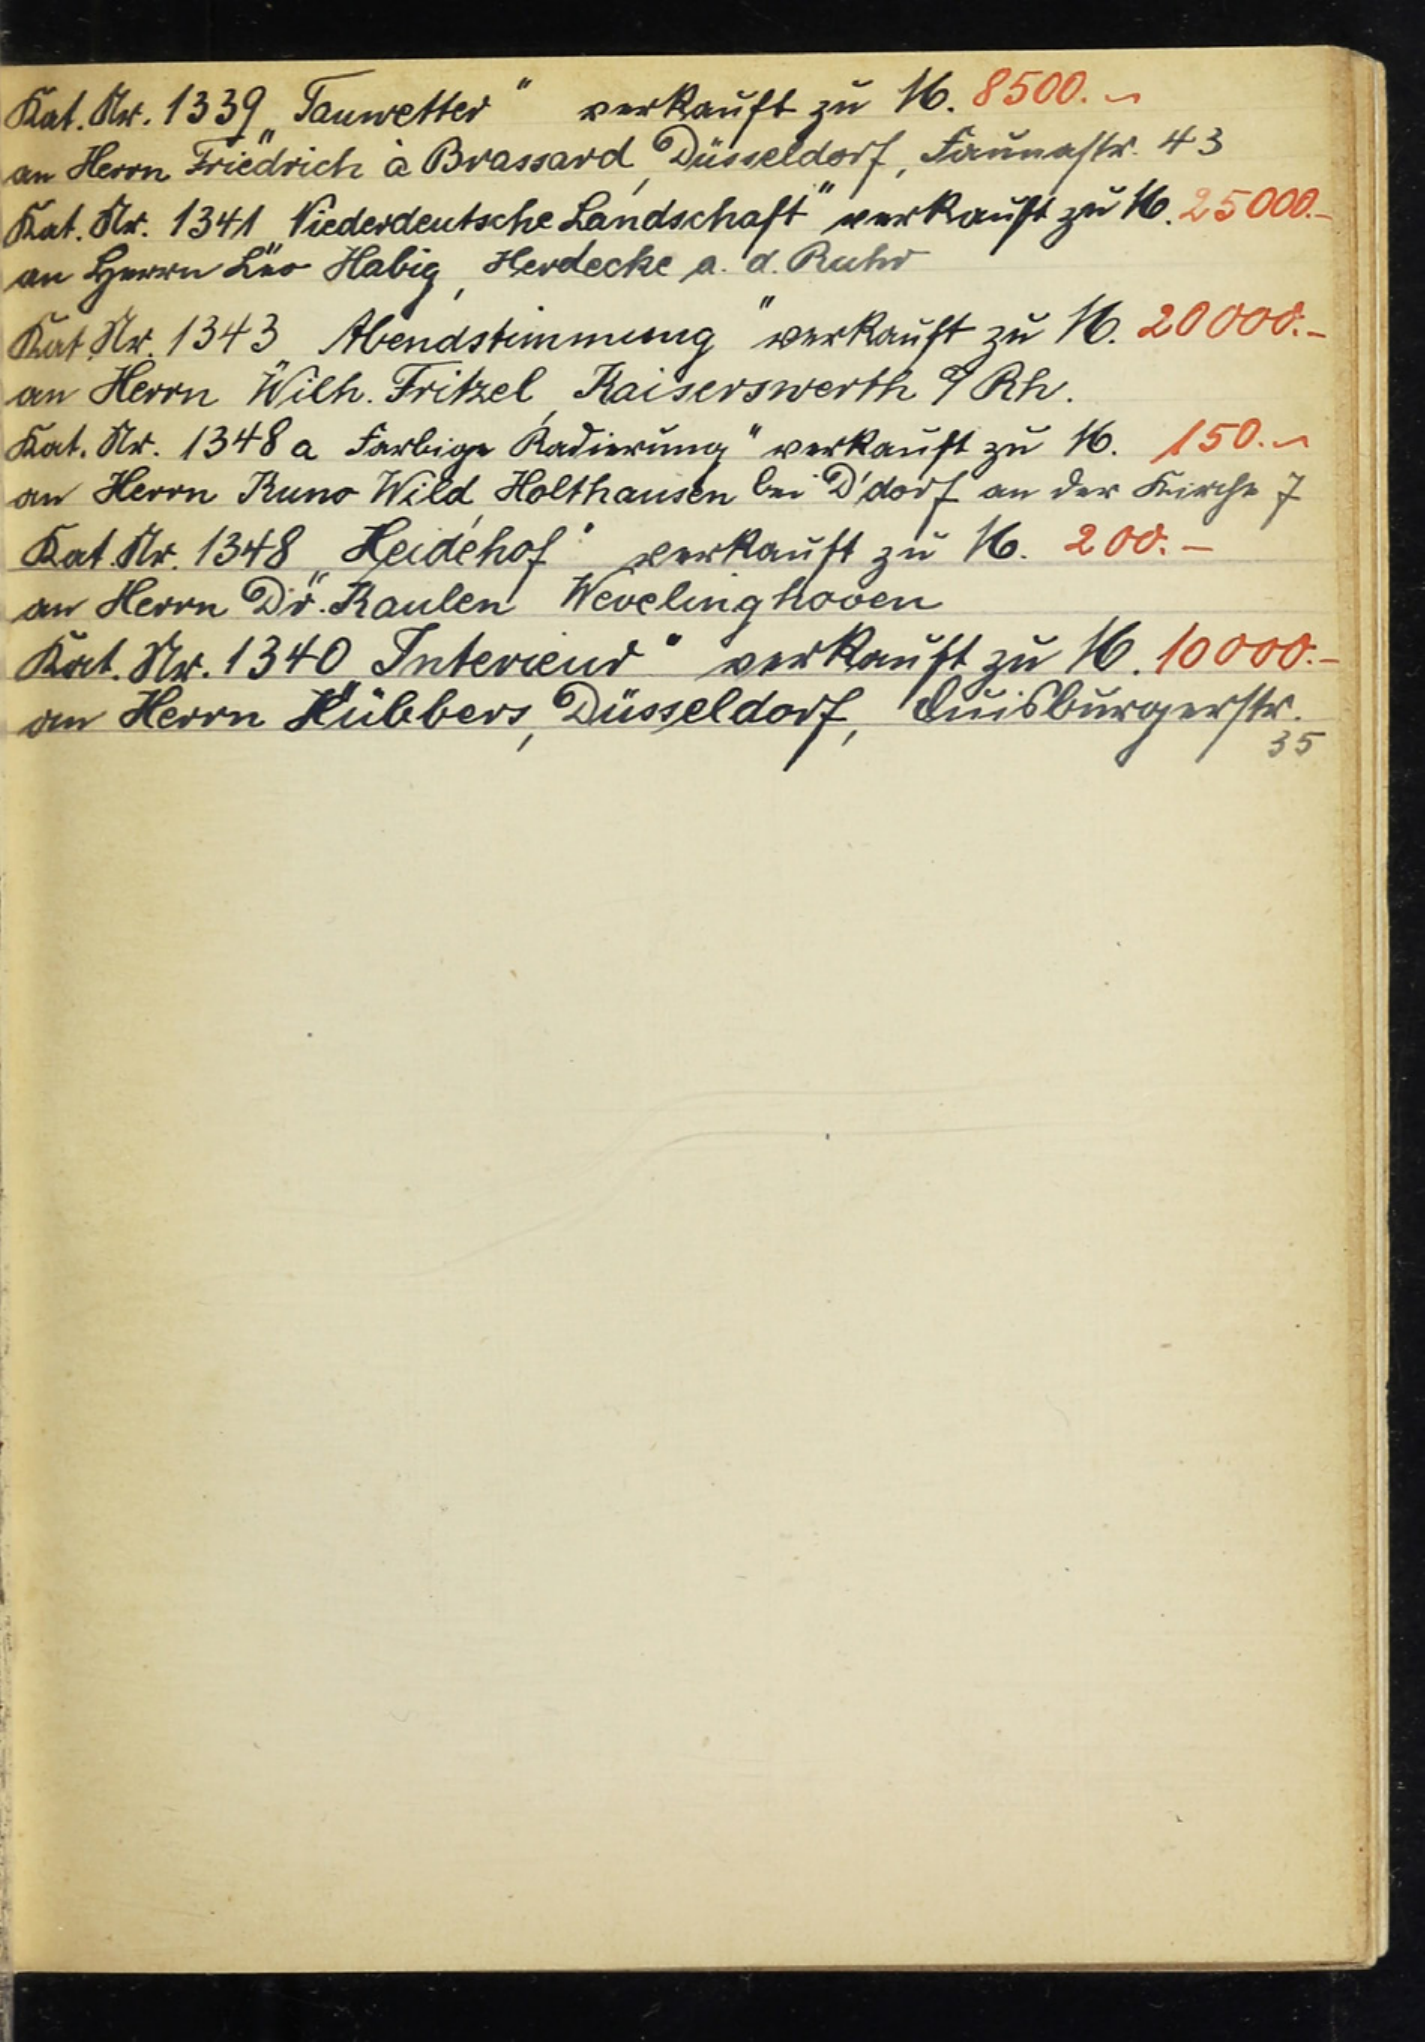 Kat. Nr. 1339 „Tauwetter" verkauft zu M. 8500.–
an Herrn Friedrich à Brassard, Düsseldorf, Faunastr. 43
Kat. Nr. 1341 „Niederdeutsche Landschaft" verkauft zu M. 25000.–
an Herrn Leo Habig, Herdecke a. d. Ruhr
Kat. Nr. 1343 „Abendstimmung" verkauft zu M. 20000.–
an Herrn Wilh. Fritzel, Kaiserswerth a/Rh.
Kat. Nr. 1348 a „Farbige Radierung" verkauft zu M. 150.–
an Herrn Kuno Wild, Holthausen bei D'dorf an der Kirche 7
Kat. Nr. 1348 „Heidehof" verkauft zu M. 200.–
an Herrn Dr. Kaulen, Wevelinghoven
Kat. Nr. 1340 „Interieur" verkauft zu M. 10000.–
an Herrn Hübbers, Düsseldorf, Duisburgerstr.
35